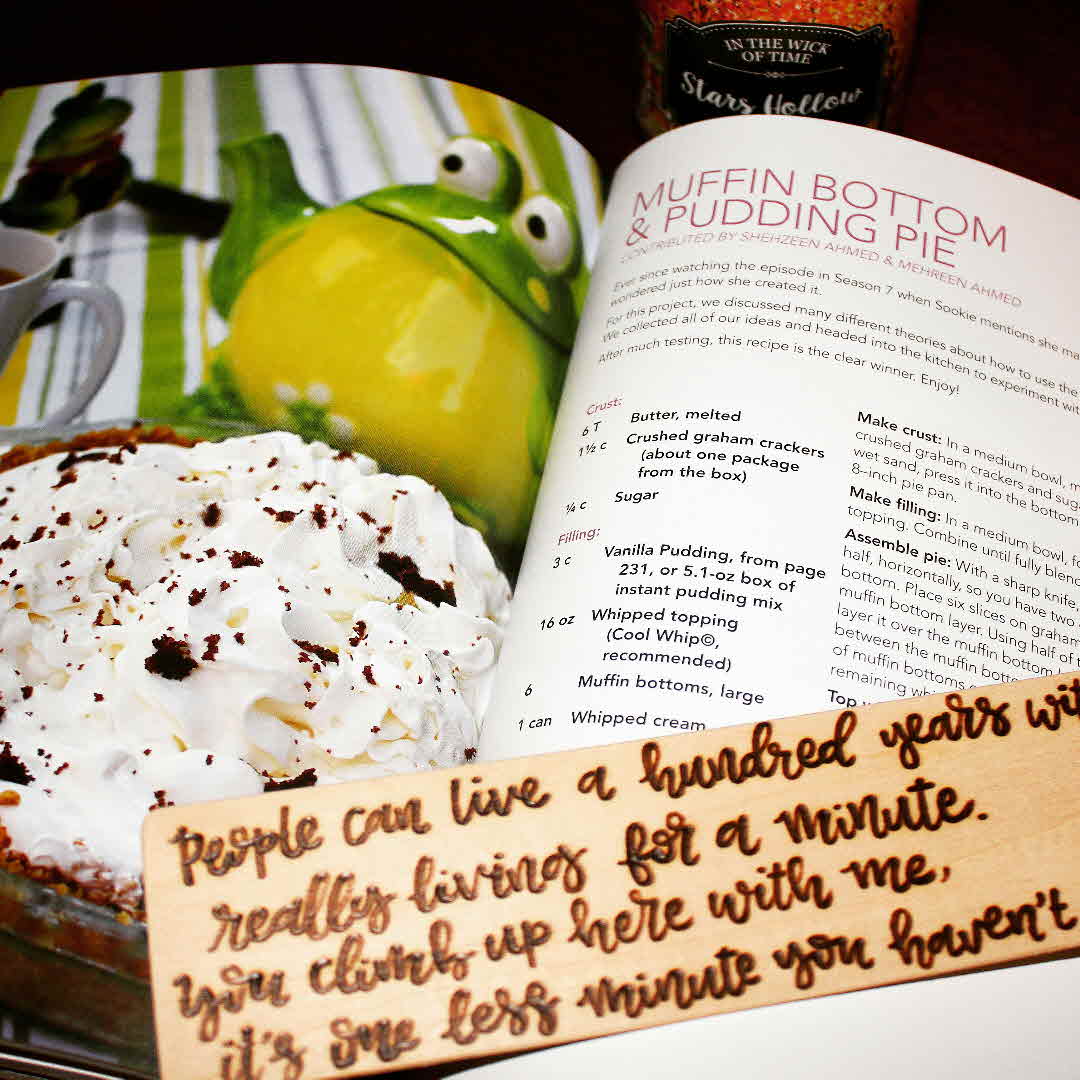 IN THE WICK
OF TIME
Stars Hollow
MUFFIN BOTTOM
& PUDDING PIE
CONTRIBUTED BY SHEHZEEN AHMED & MEHREEN AHMED
Ever since watching the episode in Season 7 when Sookie mentions she
wondered just how she created it.
For this project, we discussed many different theories about how to use the
We collected all of our ideas and headed into the kitchen to experiment
After much testing, this recipe is the clear winner. Enjoy!
Crust:
6 T Butter, melted
1½ c Crushed graham crackers
(about one package
from the box)
¼ c Sugar
Filling:
3 c Vanilla Pudding, from page
231, or 5.1-oz box of
instant pudding mix
16 oz Whipped topping
(Cool Whip©,
recommended)
6 Muffin bottoms, large
1 can Whipped cream
Make crust: In a medium bowl,
crushed graham crackers and
wet sand, press it into the bottom
8-inch pie pan.
Make filling: In a medium bowl,
topping. Combine until fully
Assemble pie: With a sharp knife,
half, horizontally, so you have two
bottom. Place six slices on
muffin bottom layer. Using half of
layer it over the muffin bottom
between the muffin
of muffin bottoms
remaining
Top
People can live a hundred years
really living for a minute.
you climb up here with me,
it's one less minute you haven't